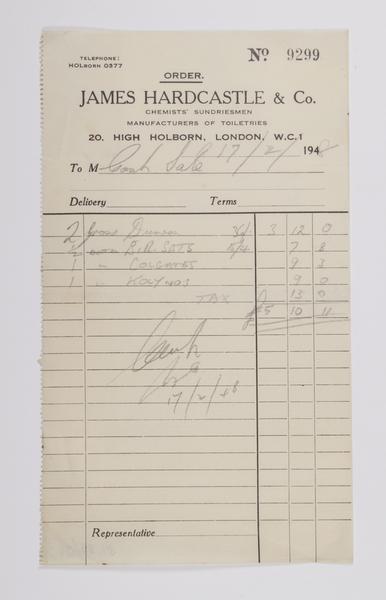 TELEPHONE:
HOLBORN 0377
No 9299
ORDER.
JAMES HARDCASTLE & Co.
CHEMISTS' SUNDRIESMEN
MANUFACTURERS OF TOILETRIES
20, HIGH HOLBORN, LONDON, W.C.1
To M Cash Sale 17/2/ 1948
Delivery Terms
2 Gross 36/ 3 12 0
½ 15/4 7 8
1 " COLGATES 9 3
1 " KOLYNOS 9 0
TAX 13 0
£5 10 11
Cash
17/2/48
Representative